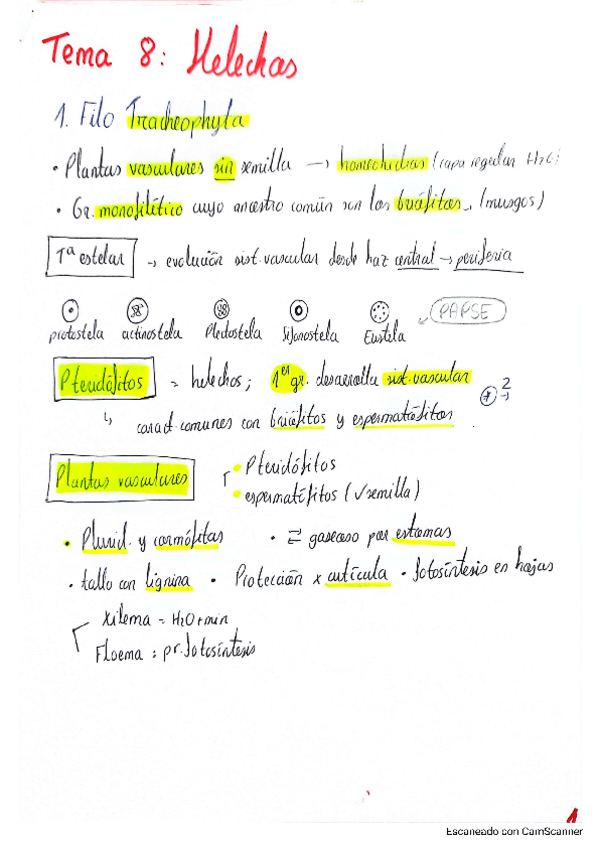 Tema 8: Helechos
1. Filo Tracheophyta
• Plantas vasculares sin semilla → homeohidras (capa regular H2O)
• Gr. monofilético cuyo ancestro común son los briófitos. (musgos)
Tª estelar → evolución sist. vascular desde haz central → periferia
protostela actinostela Plectostela Sifonostela Eustela PAPSE
Pteridófitos = helechos; 1er gr. desarrolla sist. vascular
↳ caract. comunes con briófitos y espermatófitos 2
Plantas vasculares • Pteridófitos
• espermatófitos (√ semilla)
• Plurid. y cormófitas • ⇄ gaseoso por estomas
• tallo con lignina • Protección x cutícula • fotosíntesis en hojas
Xilema = H2O + min
Floema = pr. fotosíntesis
1
Escaneado con CamScanner